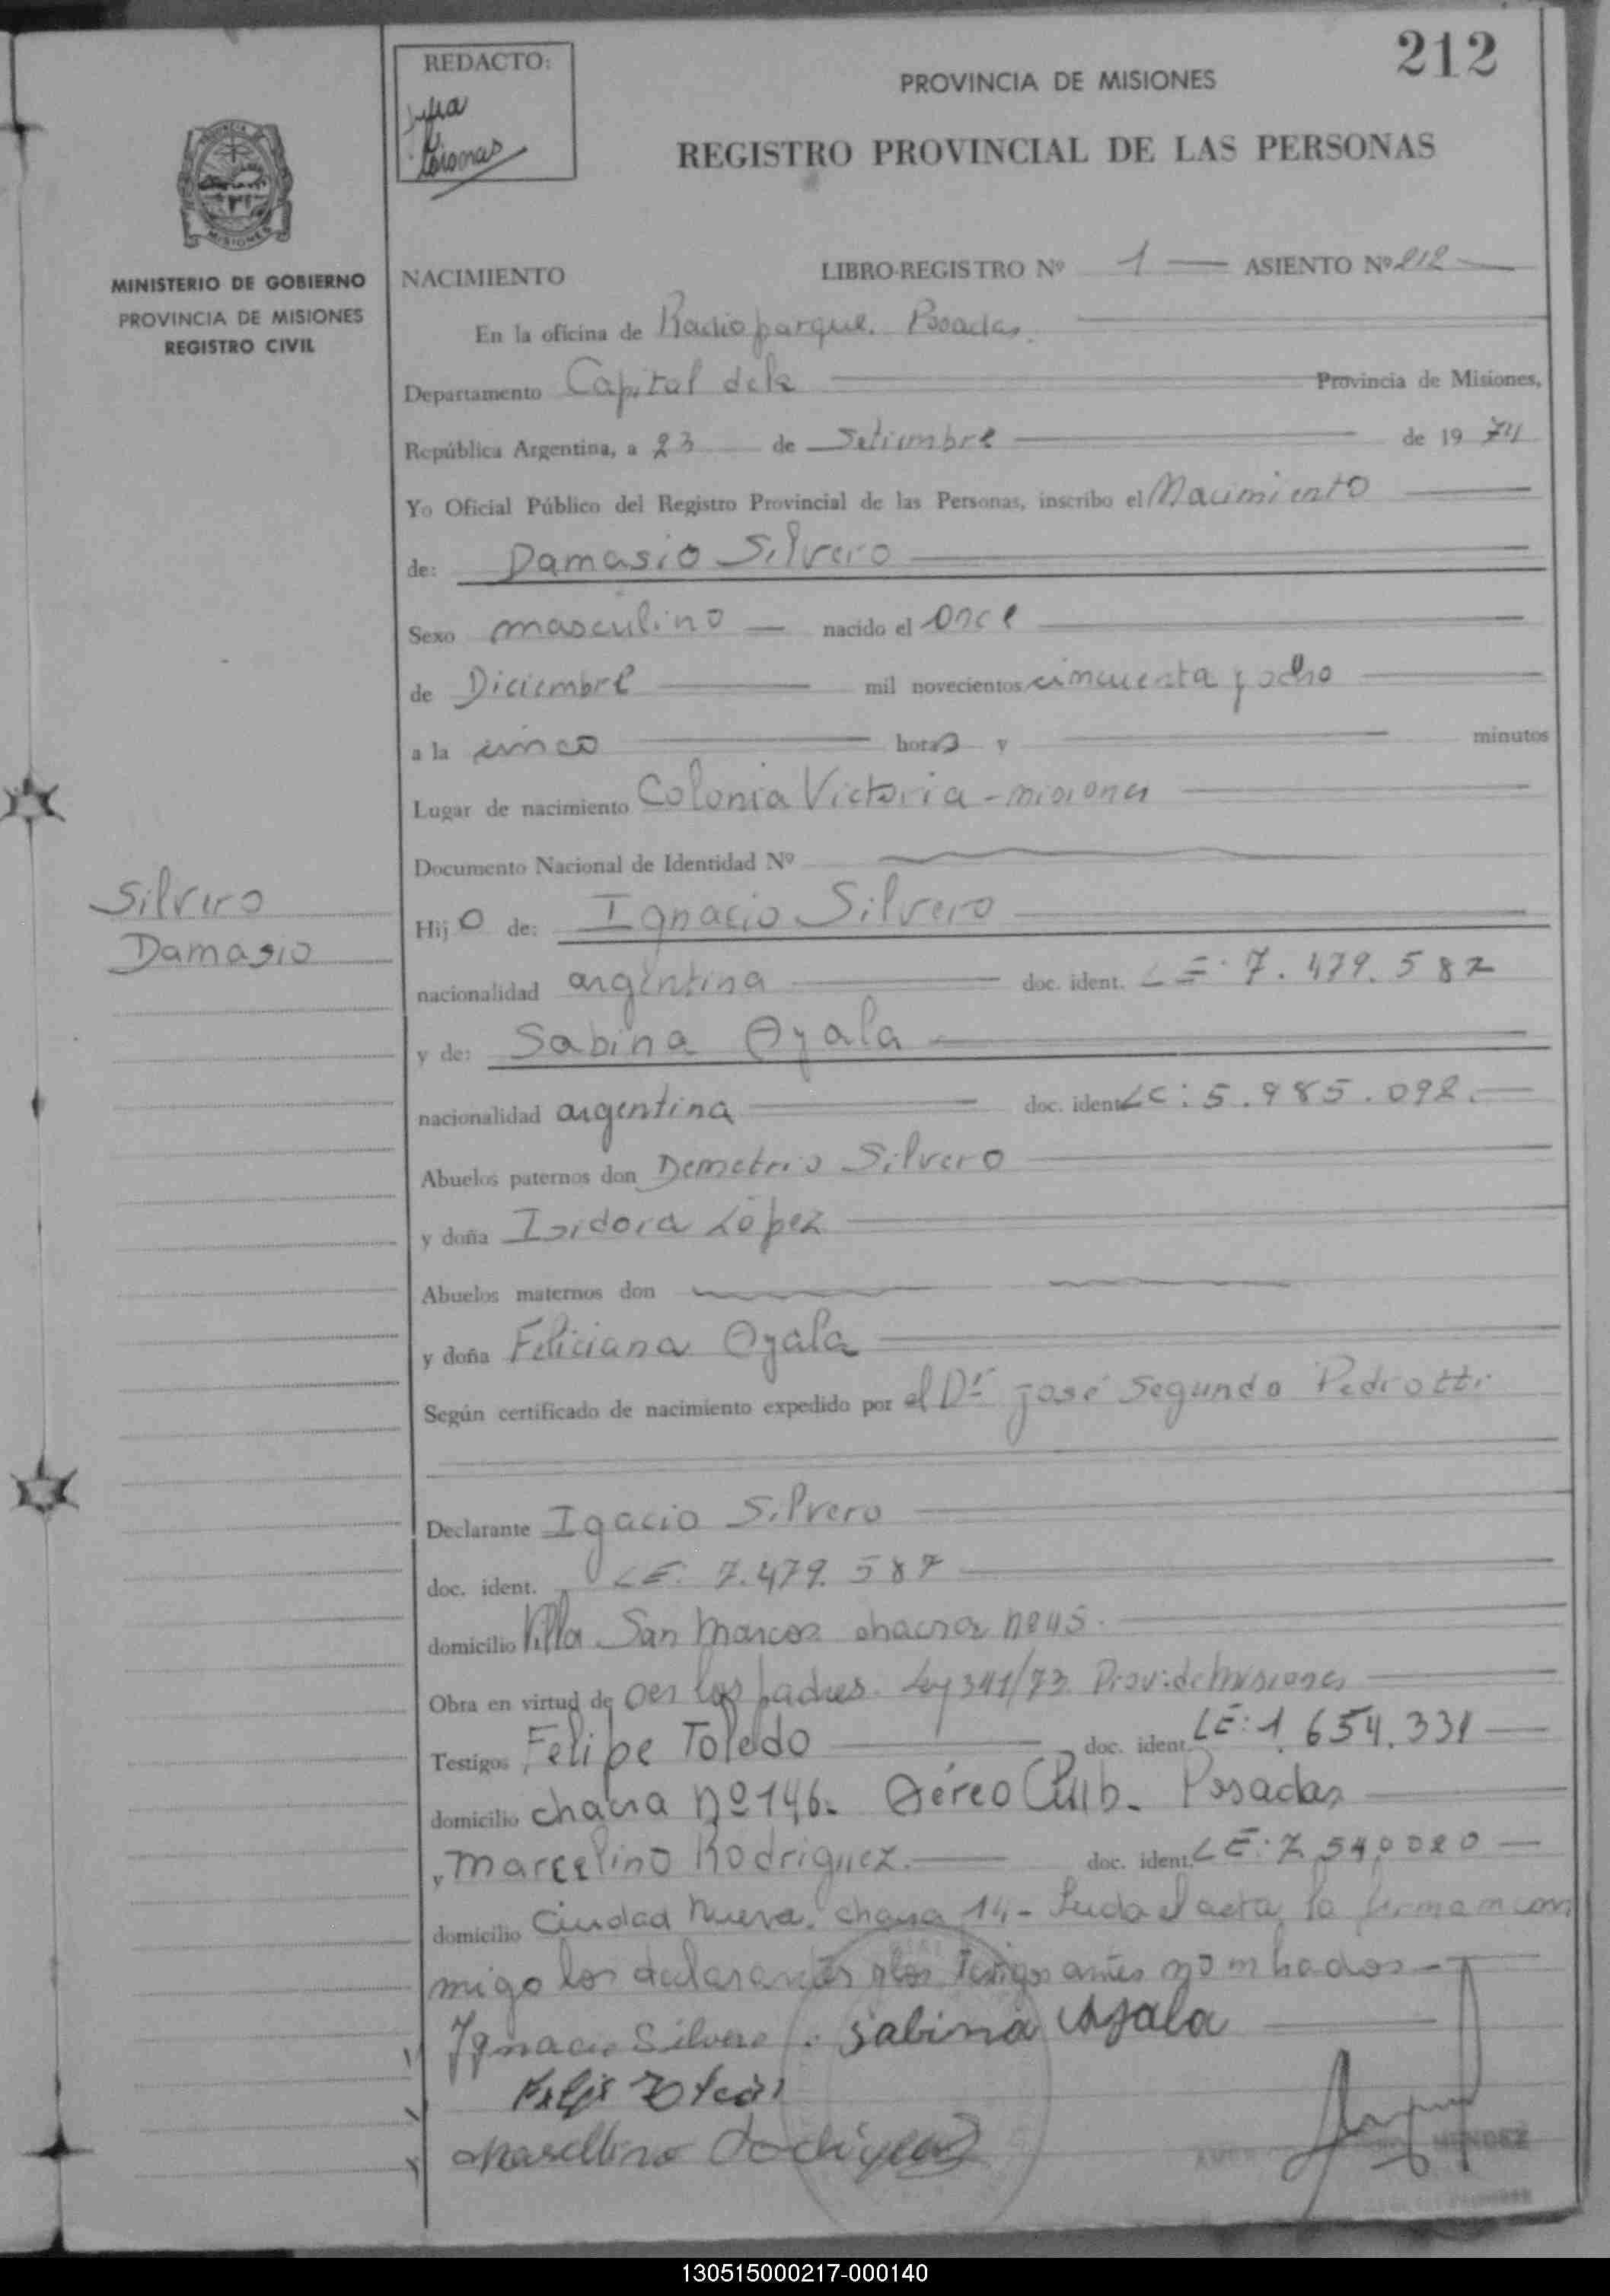 212
REDACTO:
PROVINCIA DE MISIONES
REGISTRO PROVINCIAL DE LAS PERSONAS
MISIONES
MINISTERIO DE GOBIERNO
PROVINCIA DE MISIONES
REGISTRO CIVIL
NACIMIENTO LIBRO-REGISTRO Nº 1 — ASIENTO Nº 212
En la oficina de Radioparque. Posadas.
Departamento Capital dela Provincia de Misiones,
República Argentina, a 23 de Setiembre de 19 74
Yo Oficial Público del Registro Provincial de las Personas, inscribo el Nacimiento
de: Damasio Silvero
Sexo masculino nacido el once
de Diciembre mil novecientos cincuenta y ocho
a la cinco horas y minutos
Lugar de nacimiento Colonia Victoria - misiones
Documento Nacional de Identidad Nº
Silvero
Damasio
Hijo de: Ignacio Silvero
nacionalidad argentina doc. ident. LE: 7.479.587
y de: Sabina Ayala
nacionalidad argentina doc. ident. LC: 5.985.092.
Abuelos paternos don Demetrio Silvero
y doña Isidora López
Abuelos maternos don
y doña Feliciana Ayala
Según certificado de nacimiento expedido por el Dr José Segundo Pedrotti
Declarante Igacio Silvero
doc. ident. LE: 7.479.587
domicilio Villa San Marcos chacra nº 45.
Obra en virtud de ser los padres. Ley 341/73. Prov: de Misiones
Testigos Felipe Toledo doc. ident. LE: 1.654.331
domicilio chacra nº 146. Aéreo Club. Posadas
y Marcelino Rodriguez. doc. ident. LE: 7.540.020
domicilio Ciudad Nueva. chacra 14 - Leida el acta, la firman con
migo los declarantes y los testigos antes nombrados -
Ygnacio Silvero. Sabina Ayala
MENDEZ
130515000217-000140